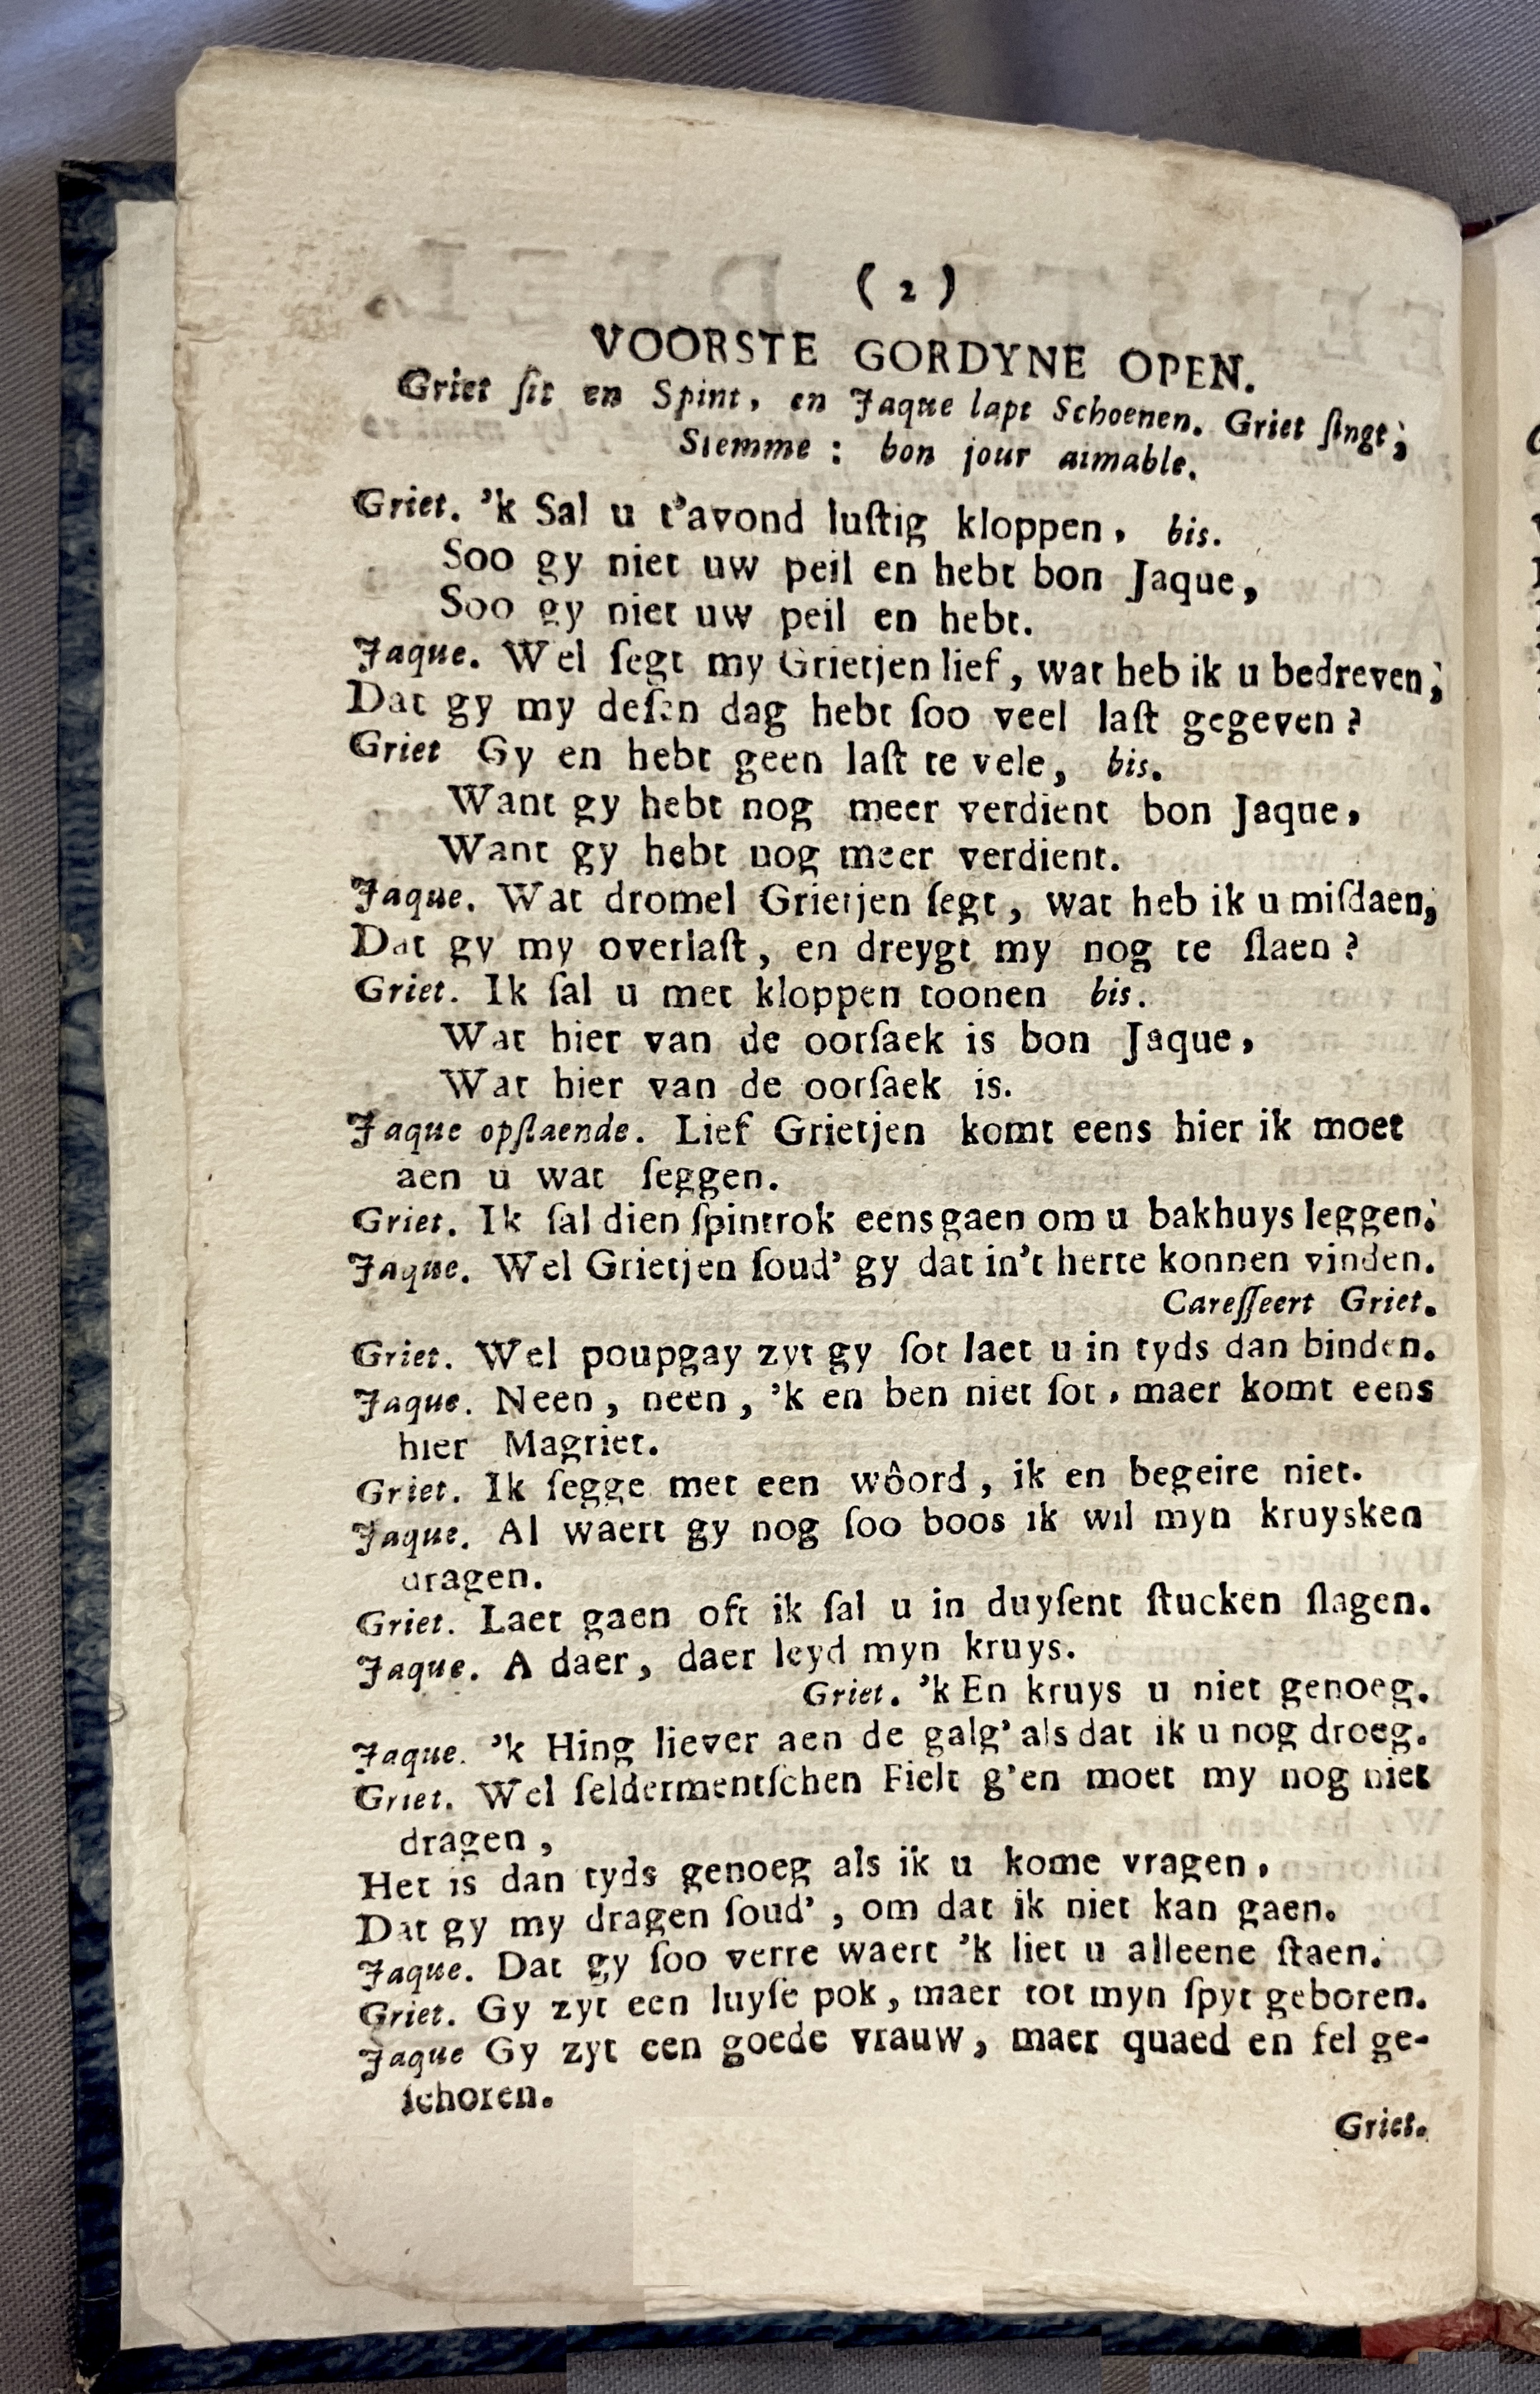 ( 2 )
VOORSTE GORDYNE OPEN.
Griet ſit en Spint, en Jaque lapt Schoenen. Griet ſingt;
Stemme : bon jour aimable.
Griet. 'k Sal u t'avond luſtig kloppen, bis.
Soo gy niet uw peil en hebt bon Jaque,
Soo gy niet uw peil en hebt.
Jaque. Wel ſegt my Grietjen lief, wat heb ik u bedreven;
Dat gy my deſen dag hebt ſoo veel laſt gegeven?
Griet Gy en hebt geen laſt te vele, bis.
Want gy hebt nog meer verdient bon Jaque,
Want gy hebt nog meer verdient.
Jaque. Wat dromel Grietjen ſegt, wat heb ik u miſdaen,
Dat gy my overlaſt, en dreygt my nog te ſlaen?
Griet. Ik ſal u met kloppen toonen bis.
Wat hier van de oorſaek is bon Jaque,
Wat hier van de oorſaek is.
Jaque opſtaende. Lief Grietjen komt eens hier ik moet
aen u wat ſeggen.
Griet. Ik ſal dien ſpintrok eens gaen om u bakhuys leggen.
Jaque. Wel Grietjen ſoud' gy dat in't herte konnen vinden.
Careſſeert Griet.
Griet. Wel poupgay zyt gy ſot laet u in tyds dan binden.
Jaque. Neen, neen, 'k en ben niet ſot, maer komt eens
hier Magriet.
Griet. Ik ſegge met een wôord, ik en begeire niet.
Jaque. Al waert gy nog ſoo boos ik wil myn kruysken
dragen.
Griet. Laet gaen oft ik ſal u in duyſent ſtucken ſlagen.
Jaque. A daer, daer leyd myn kruys.
Griet. 'k En kruys u niet genoeg.
Jaque. 'k Hing liever aen de galg' als dat ik u nog droeg.
Griet. Wel ſeldermentſchen Fielt g'en moet my nog niet
dragen,
Het is dan tyds genoeg als ik u kome vragen,
Dat gy my dragen ſoud', om dat ik niet kan gaen.
Jaque. Dat gy ſoo verre waert 'k liet u alleene ſtaen.
Griet. Gy zyt een luyſe pok, maer tot myn ſpyt geboren.
Jaque Gy zyt een goede vrauw, maer quaed en fel ge-
ſchoren.
Griet.